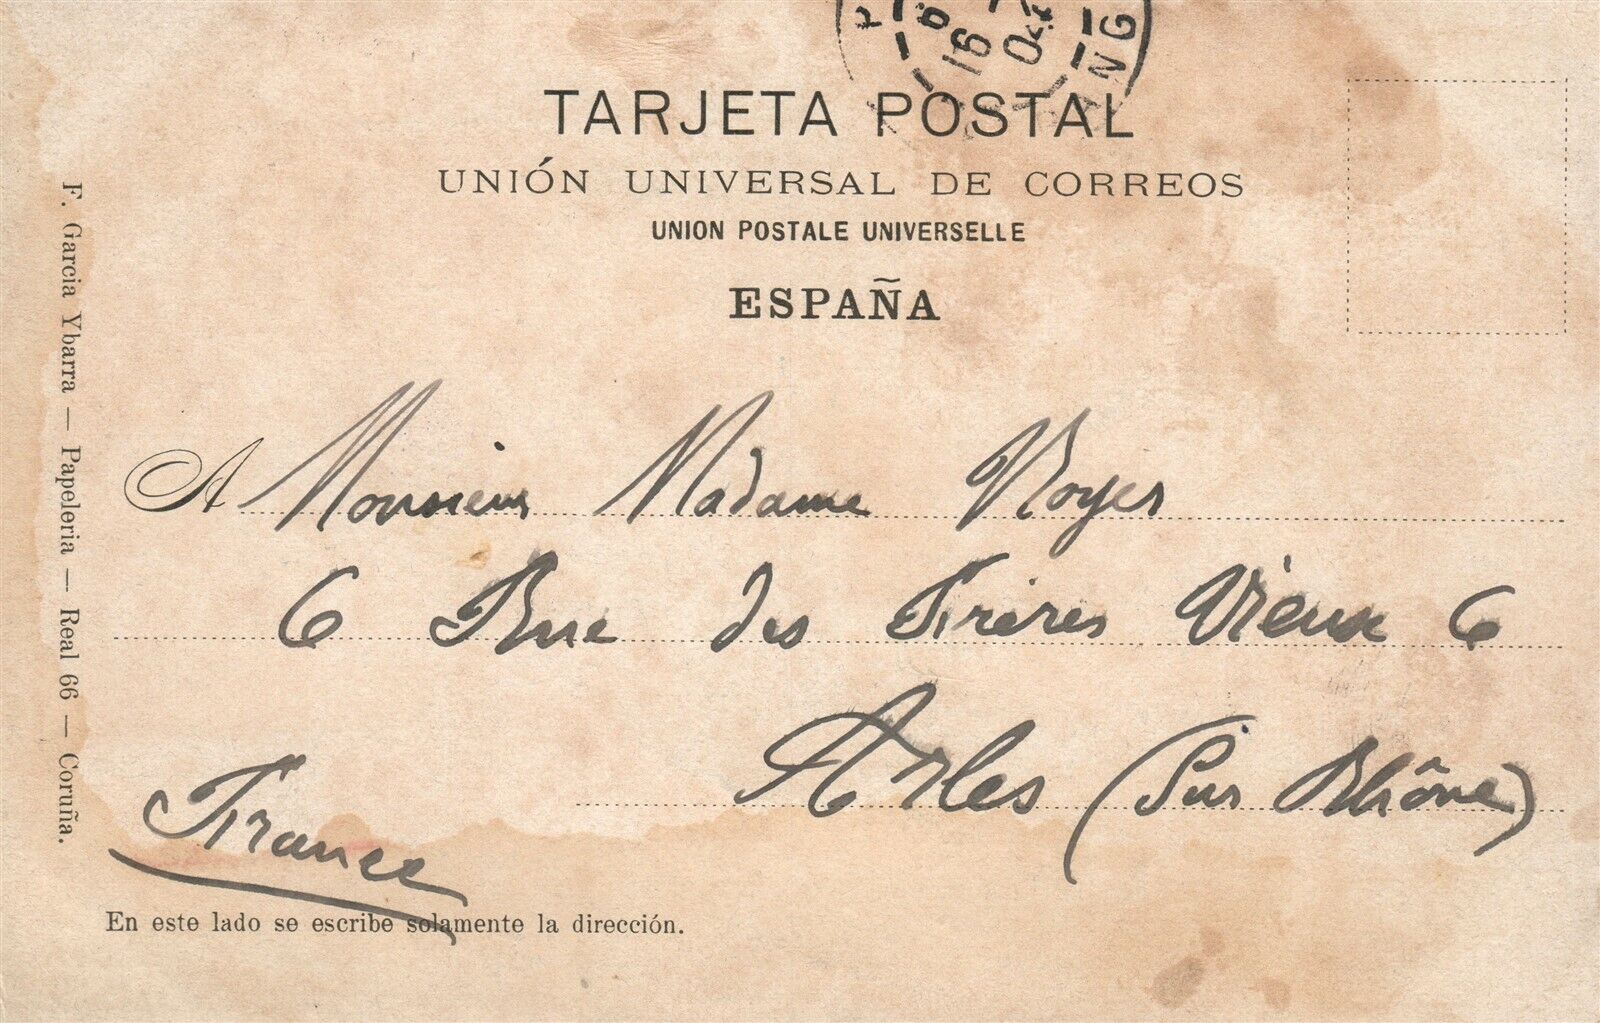 TARJETA POSTAL
UNIÓN UNIVERSAL DE CORREOS
UNION POSTALE UNIVERSELLE
ESPAÑA
A Monsieur Madame Royer
6 Rue des Frères Vieux 6
Arles (Sur Rhône)
France
En este lado se escribe solamente la dirección.
F. Garcia Ybarra — Papeleria — Real 66 — Coruña.